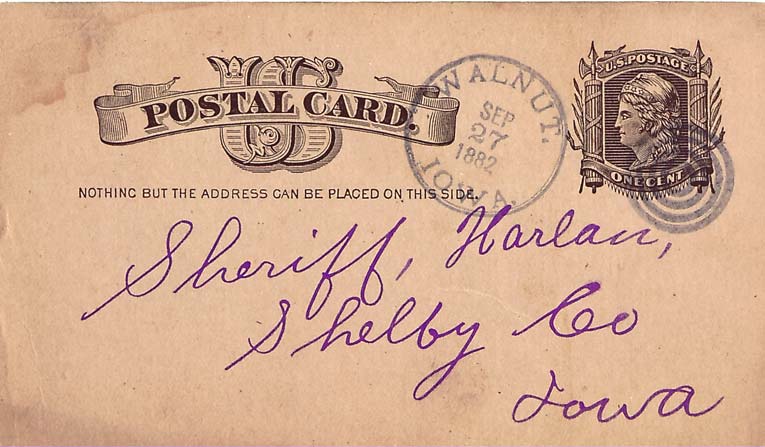 US
POSTAL CARD.
WALNUT.
SEP
27
1882
IOWA.
U.S. POSTAGE
ONE CENT
NOTHING BUT THE ADDRESS CAN BE PLACED ON THIS SIDE.
Sheriff, Harlan,
Shelby Co
Iowa